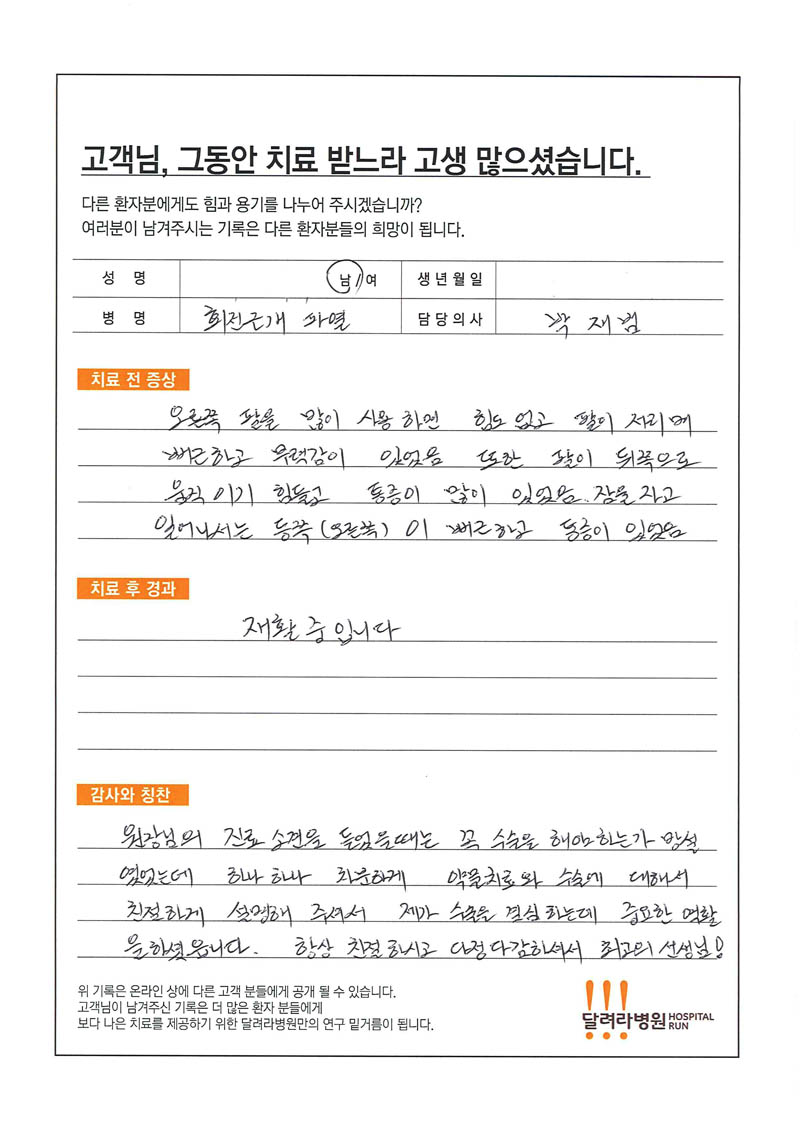 고객님, 그동안 치료 받느라 고생 많으셨습니다.
다른 환자분에게도 힘과 용기를 나누어 주시겠습니까?
여러분이 남겨주시는 기록은 다른 환자분들의 희망이 됩니다.
성 명 남/여 생년월일
병 명 회전근개 파열 담당의사 박재범
치료 전 증상
오른쪽 팔을 많이 사용하면 힘도 없고 팔이 저리며
뻐근하고 무력감이 있었음 또한 팔이 뒤쪽으로
움직이기 힘들고 통증이 많이 있었음. 잠을 자고
일어나서는 등쪽(오른쪽)이 뻐근하고 통증이 있었음
치료 후 경과
재활중입니다
감사와 칭찬
원장님의 진료소견을 들었을때는 꼭 수술을 해야하는가 망설
였었는데 하나하나 차분하게 약물치료와 수술에 대해서
친절하게 설명해 주셔서 제가 수술을 결심하는데 중요한 역할
을하셨읍니다. 항상 친절하시고 다정다감하셔서 최고의 선생님!
위 기록은 온라인 상에 다른 고객 분들에게 공개 될 수 있습니다.
고객님이 남겨주신 기록은 더 많은 환자 분들에게
보다 나은 치료를 제공하기 위한 달려라병원만의 연구 밑거름이 됩니다.
달려라병원 HOSPITAL RUN